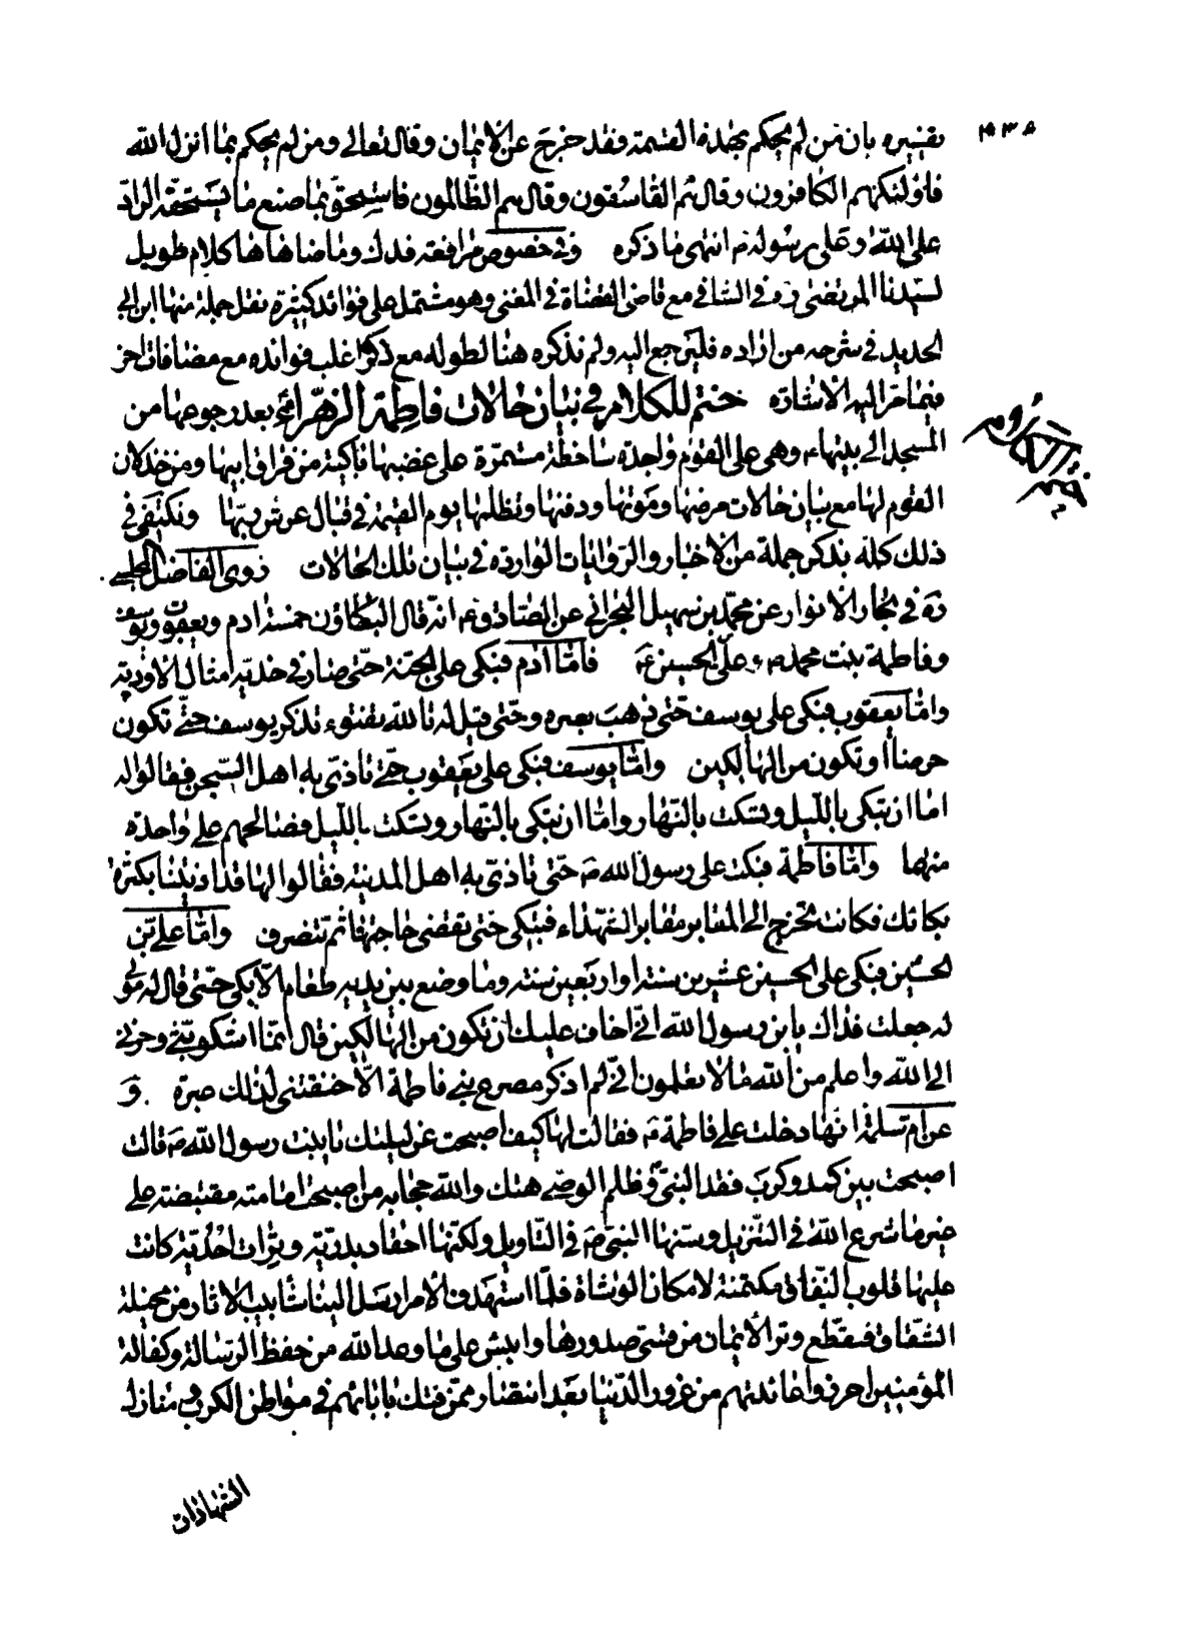 ٩٣٨
تفسيره بان من لم يحكم بهذه القسمة فقد خرج عن الايمان وقال تعالى ومن لم يحكم بما انزل الله
فاولئك هم الكافرون وقال هم الفاسقون وقال هم الظالمون فاستحق بما صنع ما يستحقه الراد
على الله وعلى رسوله ص انتهى ما ذكره وفى خصوص مرافعة فدك وما ضاهاها كلام طويل
لسيدنا المرتضى ره فى الشافى مع قاضى القضاة فى المغنى وهو مشتمل على فوائد كثيرة نقل جملة منها ابن ابى
الحديد فى شرحه من اراده فليرجع اليه ولم نذكره هنا لطوله مع ذكر اغلب فوائده مع مضافات اخر
فيما مر اليه الاشارة ختم للكلام فى بيان حالات فاطمة الزهراء بعد رجوعها من
المسجد الى بيتها وهى على القوم واجدة ساخطة مستمرة على غضبها باكية من فراق ابيها ومن خذلان
القوم لها مع بيان حالات مرضها وموتها ودفنها وتظلمها يوم القيمة فى قبال عرش ربها ونكتفى فى
ذلك كله بذكر جملة من الاخبار والروايات الواردة فى بيان تلك الحالات روى الفاضل المجلسى
ره فى بحار الانوار عن محمد بن سهيل البحرانى عن الصادق ع انه قال البكاؤن خمسة ادم ويعقوب ويوسف
وفاطمة بنت محمد ص وعلى بن الحسين ع فاما ادم فبكى على الجنة حتى صار فى خديه امثال الاودية
واما يعقوب فبكى على يوسف حتى ذهب بصره وحتى قيل له تالله تفتؤ تذكر يوسف حتى تكون
حرضا او تكون من الهالكين واما يوسف فبكى على يعقوب حتى تاذى به اهل السجن فقالوا له
اما ان تبكى بالليل وتسكت بالنهار واما ان تبكى بالنهار وتسكت بالليل فصالحهم على واحدة
منهما واما فاطمة فبكت على رسول الله ص حتى تاذى به اهل المدينة فقالوا لها قد اذيتنا بكثرة
بكائك فكانت تخرج الى المقابر مقابر الشهداء فتبكى حتى تقضى حاجتها ثم تنصرف واما على بن
الحسين فبكى على الحسين عشرين سنة او اربعين سنة وما وضع بين يديه طعام الا بكى حتى قال له مولى
له جعلت فداك يابن رسول الله انى اخاف عليك ان تكون من الهالكين قال انما اشكو بثى وحزنى
الى الله واعلم من الله ما لا تعلمون انى لم اذكر مصرع بنى فاطمة الا خنقتنى لذلك عبرة و
عن ام سلمة انها دخلت على فاطمة ع فقالت لها كيف اصبحت عن ليلتك يا بنت رسول الله ص قالت
اصبحت بين كمد وكرب فقد النبى وظلم الوصى هتك والله حجابه من اصبحت امامته مقتضبة على
غير ما شرع الله فى التنزيل وسنها النبى ص فى التاويل ولكنها احقاد بدرية وترات احدية كانت
عليها قلوب النفاق مكتمنة لامكان الوشاة فلما استهدف الامر ارسل الينا شآبيب الاثار من مخيلة
الشقاق فيقطع وتر الايمان من قسى صدورها ولبئس على ما وعد الله من حفظ الرسالة وكفالة
المؤمنين احرزوا عائدتهم من غرور الدنيا بعد انتصار ممن فتك باباءهم فى مواطن الكرب ومنازل
الشهادات